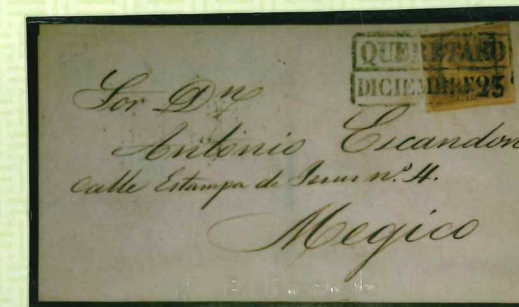 QUERETARO
DICIEMBRE 25
Sor Dn
Antonio Escandon
Calle Estampa de Jesus n.º 4.
Megico